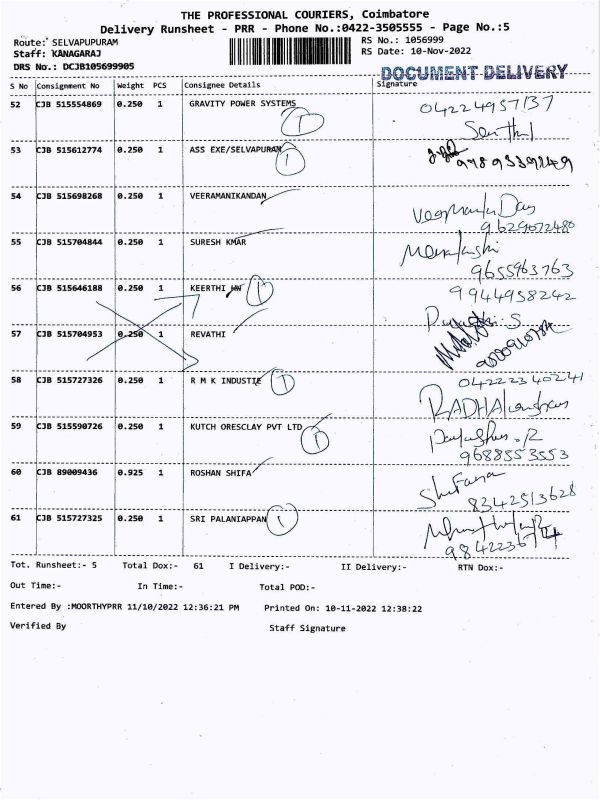 THE PROFESSIONAL COURIERS, Coimbatore
Delivery Runsheet - PRR - Phone No.:0422-3505555 - Page No.:5
Route: SELVAPUPURAM
Staff: KANAGARAJ
DRS No.: DCJB105699905
RS No.: 1056999
RS Date: 10-Nov-2022
DOCUMENT DELIVERY
S No Consignment No Weight PCS Consignee Details Signature
52 CJB 515554869 0.250 1 GRAVITY POWER SYSTEMS 1 04224957137
Senthil
53 CJB 515612774 0.250 1 ASS EXE/SELVAPURAM 1
54 CJB 515698268 0.250 1 VEERAMANIKANDAN
9629072480
55 CJB 515704844 0.250 1 SURESH KMAR
9655963763
56 CJB 515646188 0.250 1 KEERTHI 1 9944958242
57 CJB 515704953 0.250 1 REVATHI
58 CJB 515727326 0.250 1 R M K INDUSTIE 1 04222340241
RADHA
59 CJB 515590726 0.250 1 KUTCH ORESCLAY PVT LTD 1
9688553553
60 CJB 89009436 0.925 1 ROSHAN SHIFA
8342513628
61 CJB 515727325 0.250 1 SRI PALANIAPPAN 1
Tot. Runsheet:- 5 Total Dox:- 61 I Delivery:- II Delivery:- RTN Dox:-
Out Time:- In Time:- Total POD:-
Entered By :MOORTHYPRR 11/10/2022 12:36:21 PM Printed On: 10-11-2022 12:38:22
Verified By Staff Signature